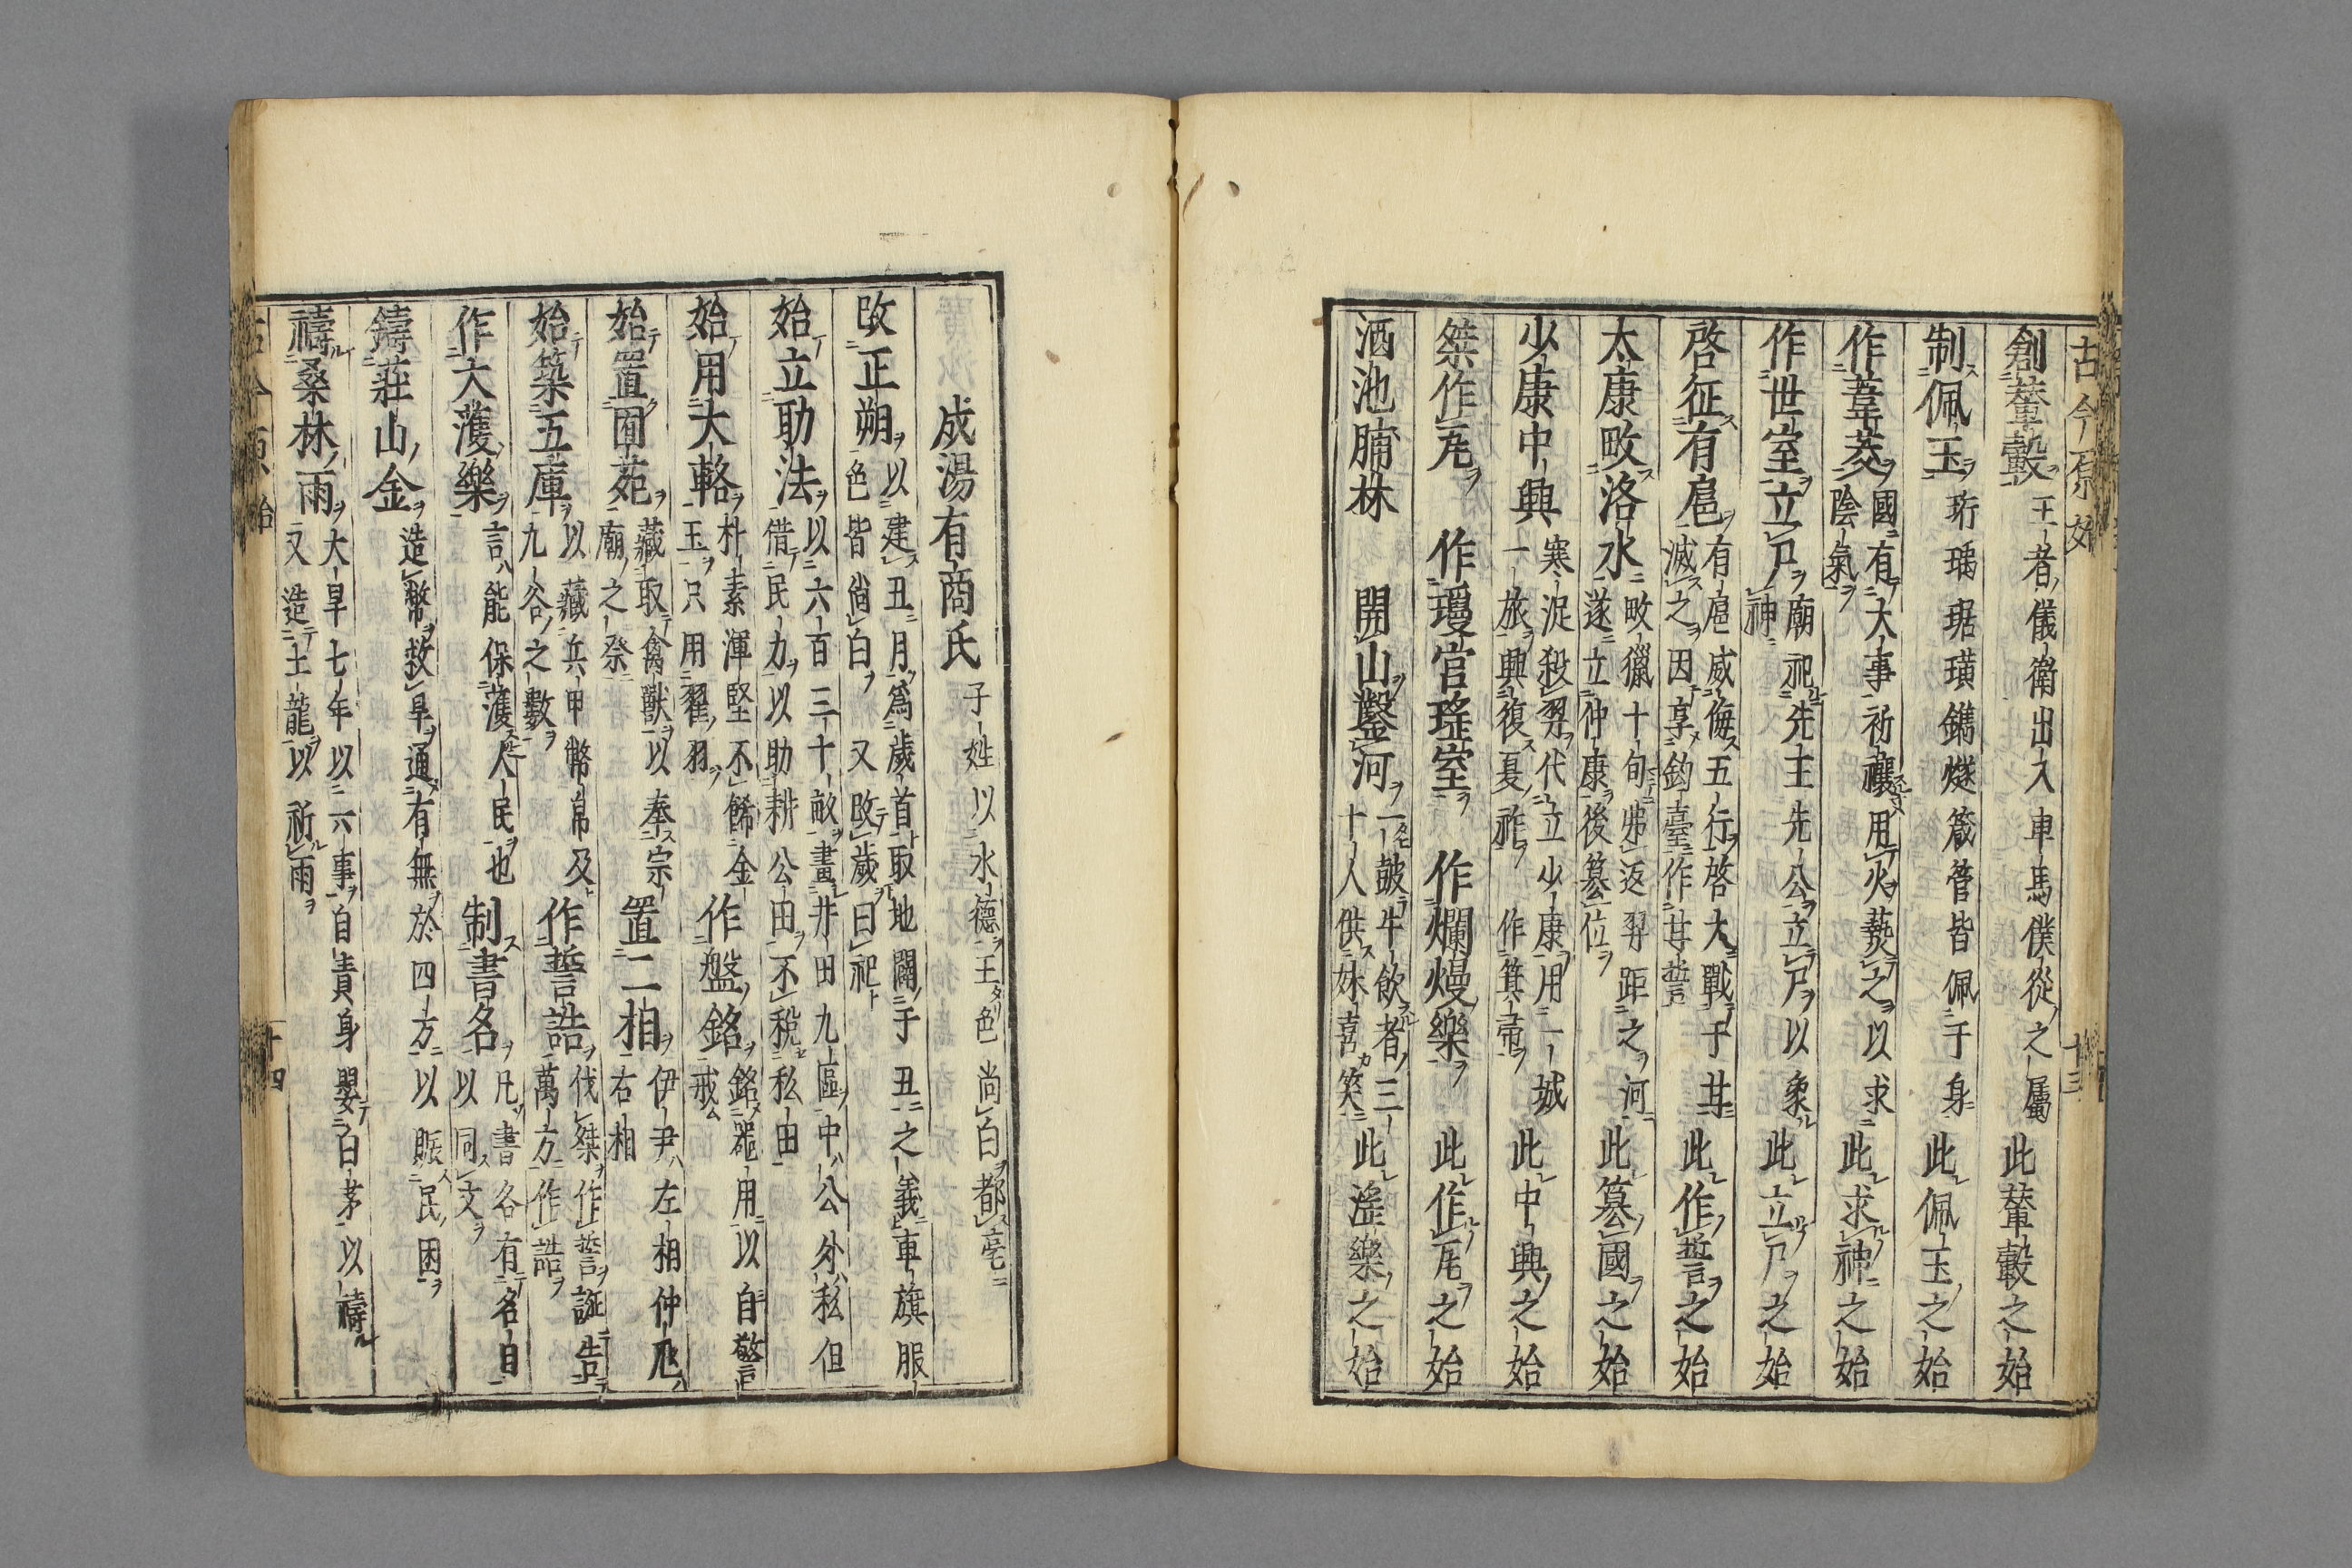 古今原始
十三
創輦轂 王者儀衛出入車馬僕從之屬 此輦轂之始
制佩玉 珩瑀琚璜鐫燧箴管皆佩于身 此佩玉之始
作葦茭 國有大事祈禳用火爇之以求
陰氣 此求神之始
作世室立尸 廟祀先王先公立尸以象
神 此立尸之始
啓征有扈 有扈威侮五行啓大戰于甘
滅之因享鈞臺作甘誓 此作誓之始
太康畋洛水 畋獵十旬弗返羿距之河
遂立仲康後篡位 此篡國之始
少康中興 寒浞殺羿代立少康用一城
一旅興復夏祚 作箕帚 此中興之始
桀作瓦 作瓊宮瑤室 作爛熳樂 此作瓦之始
酒池脯林 開山鑿河 一鼓牛飲者三
十人供妺喜笑 此滛樂之始
成湯有商氏 子姓以水德王色尚白都亳
改正朔 以建丑月爲歲首取地闢于丑之義車旗服
色皆尚白 又改歲曰祀
始立助法 以六百三十畝畫井田九區中公外私但
借民力以助耕公田不稅私田
始用大輅 朴素渾堅不餙金
玉只用翟羽 作盤銘 銘器用以自警
戒
始置囿苑 藏取禽獸以奉宗
廟之祭 置二相 伊尹左相仲虺
右相
始築五庫 以藏兵甲幣帛及
九谷之數 作誓誥 伐桀作誓誕告
萬方作誥
作大濩樂 言能保濩人民也 制書名 凡書各有名自
以同文
鑄莊山金 造幣救旱通有無於四方以賑民困
禱桑林雨 大旱七年以六事自責身嬰白茅以禱
又造土龍以祈雨
古今原始
十四